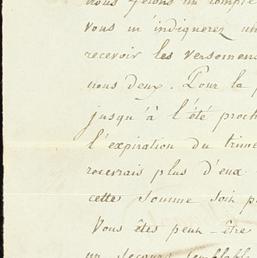 nous ferons un compte
vous m'indiquerez un
recevoir les versemens
nous deux. Pour la p
jusqu'à l'été proch
l'expiration du trime
rocevrais plus d'eux
cette somme soit p
Vous êtes peut-être
un secours semblabl